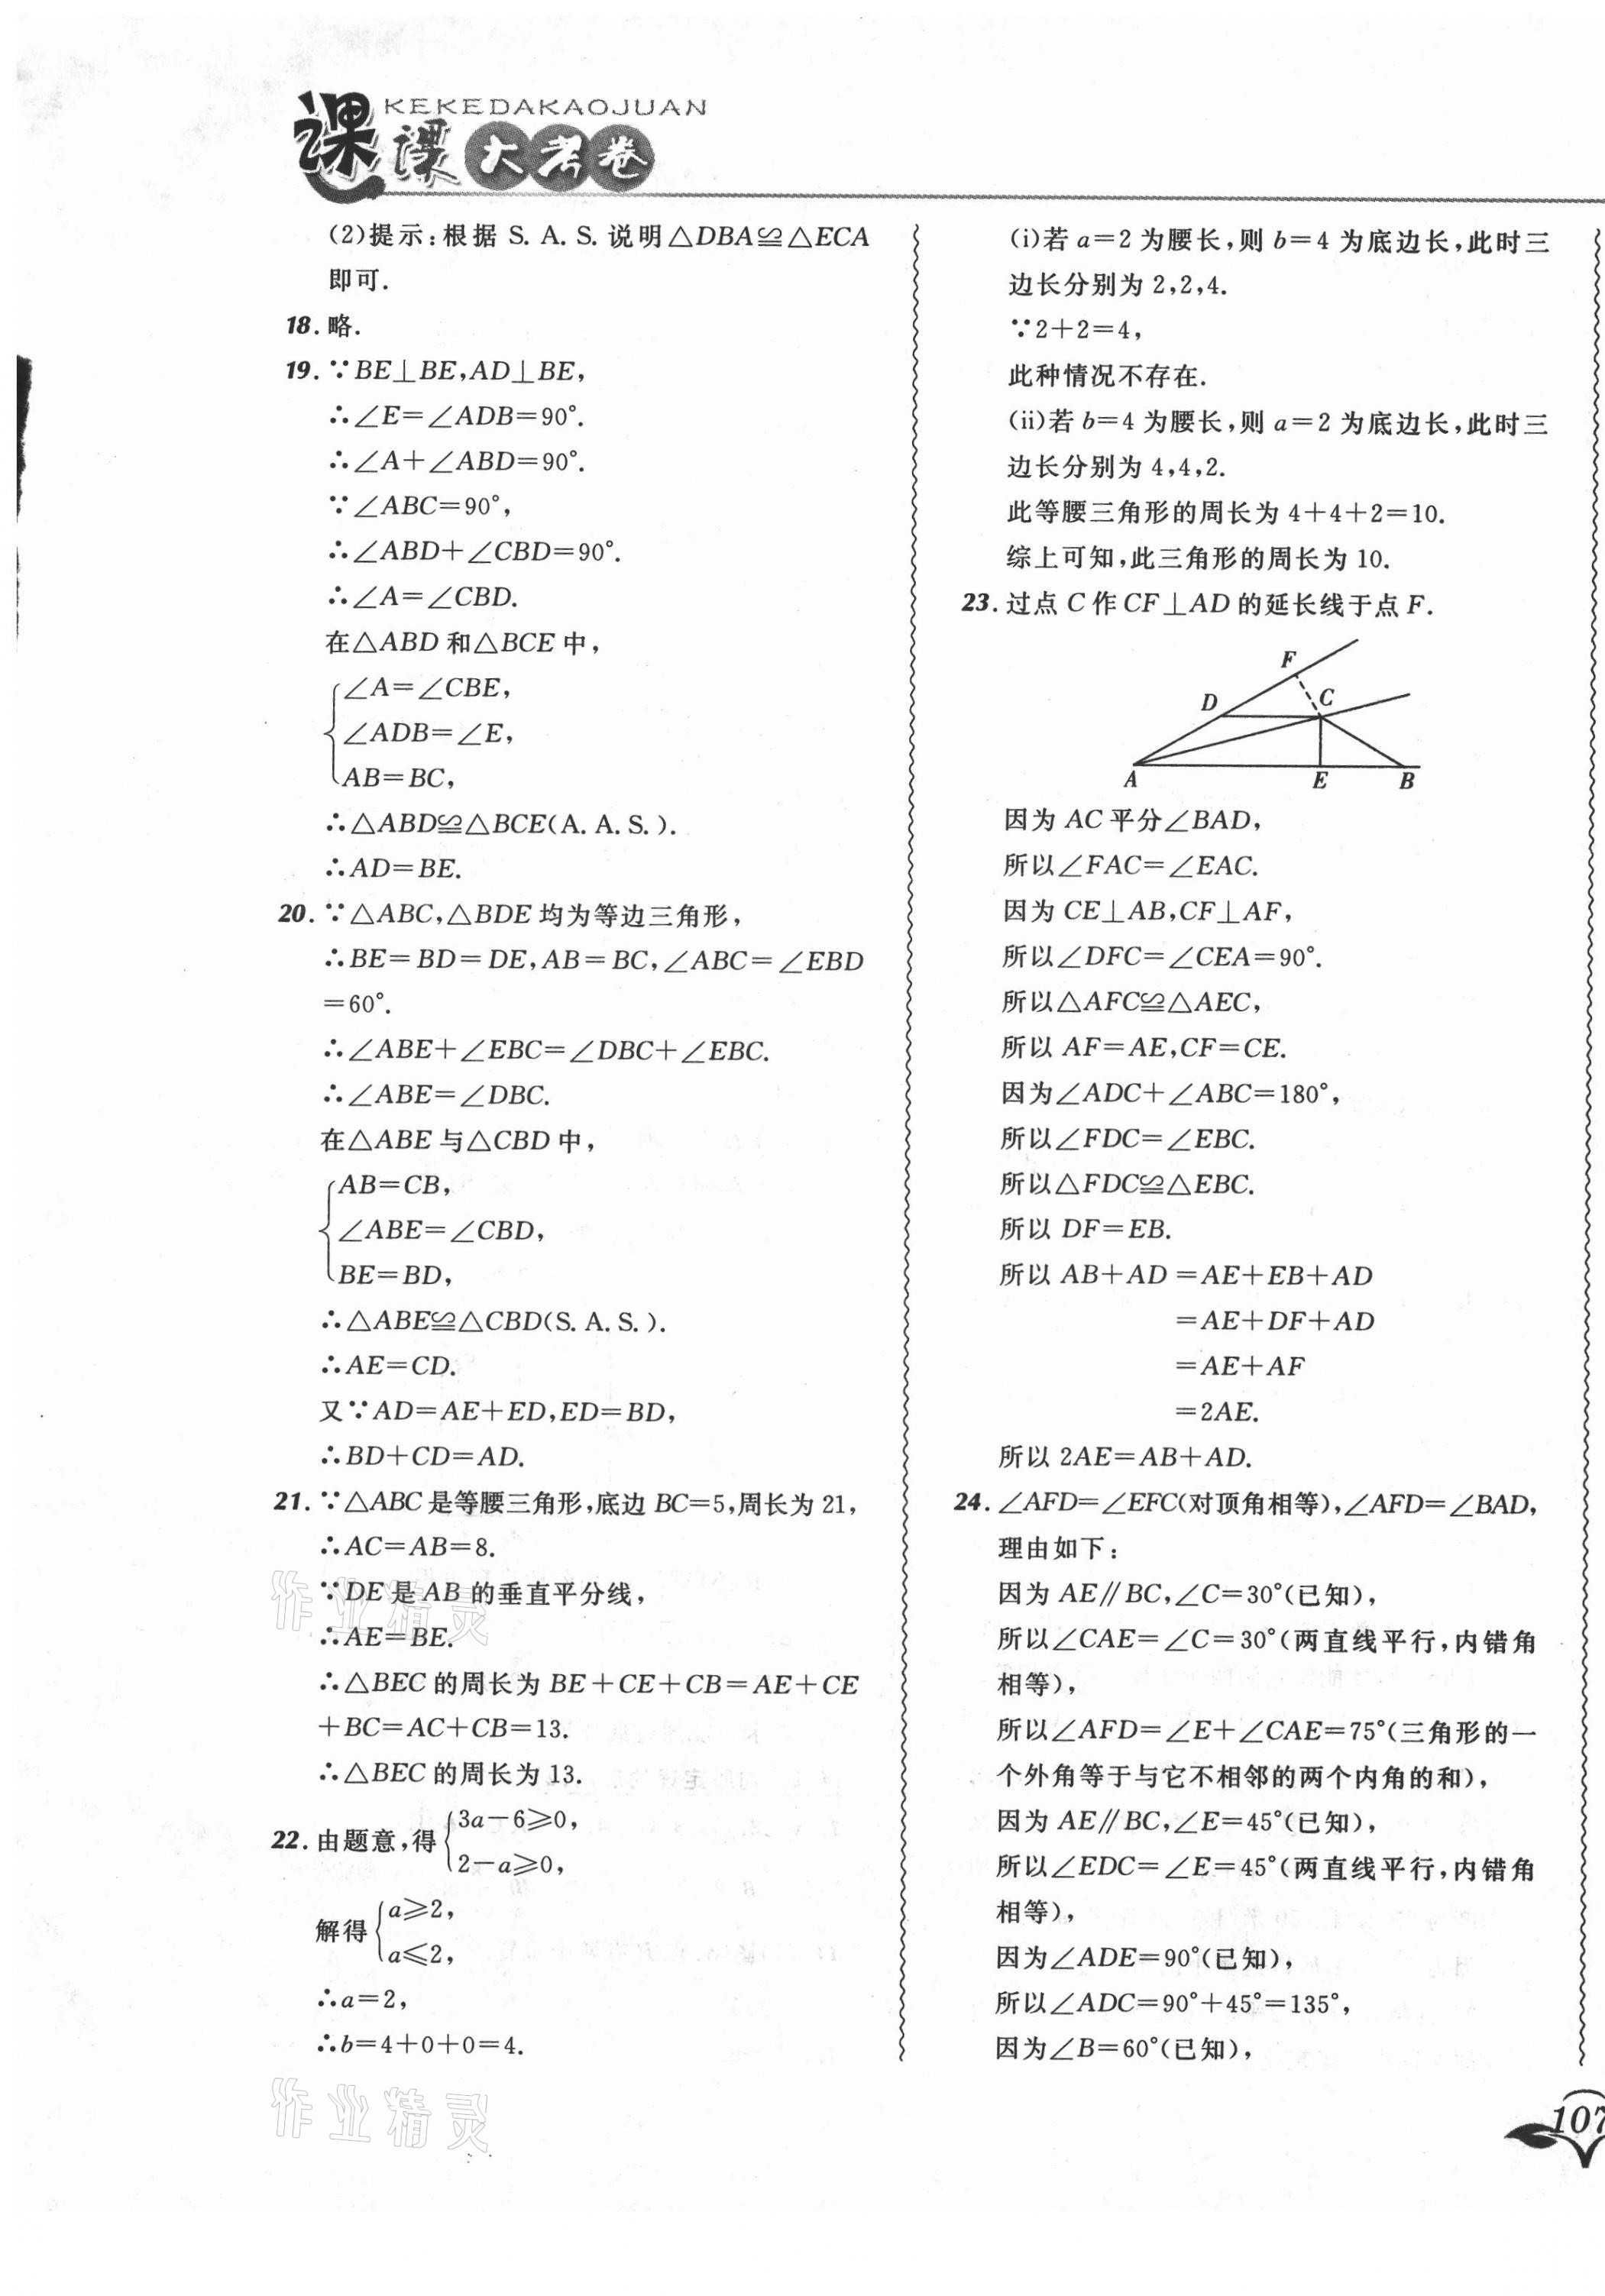 KEKEDAKAOJUAN
课课大考卷
(2)提示:根据 S. A. S. 说明△DBA≌△ECA
即可.
18. 略.
19. ∵BE⊥BE,AD⊥BE,
∴∠E=∠ADB=90°.
∴∠A+∠ABD=90°.
∵∠ABC=90°,
∴∠ABD+∠CBD=90°.
∴∠A=∠CBD.
在△ABD 和△BCE 中,
∠A=∠CBE,
∠ADB=∠E,
AB=BC,
∴△ABD≌△BCE(A. A. S. ).
∴AD=BE.
20. ∵△ABC,△BDE 均为等边三角形,
∴BE=BD=DE,AB=BC,∠ABC=∠EBD
=60°.
∴∠ABE+∠EBC=∠DBC+∠EBC.
∴∠ABE=∠DBC.
在△ABE 与△CBD 中,
AB=CB,
∠ABE=∠CBD,
BE=BD,
∴△ABE≌△CBD(S. A. S. ).
∴AE=CD.
又∵AD=AE+ED,ED=BD,
∴BD+CD=AD.
21. ∵△ABC 是等腰三角形,底边 BC=5,周长为 21,
∴AC=AB=8.
∵DE 是 AB 的垂直平分线,
∴AE=BE.
∴△BEC 的周长为 BE+CE+CB=AE+CE
+BC=AC+CB=13.
∴△BEC 的周长为 13.
22. 由题意,得
3a-6≥0,
2-a≥0,
解得
a≥2,
a≤2,
∴a=2,
∴b=4+0+0=4.
作业精灵
作业精灵
(i)若 a=2 为腰长,则 b=4 为底边长,此时三
边长分别为 2,2,4.
∵2+2=4,
此种情况不存在.
(ii)若 b=4 为腰长,则 a=2 为底边长,此时三
边长分别为 4,4,2.
此等腰三角形的周长为 4+4+2=10.
综上可知,此三角形的周长为 10.
23. 过点 C 作 CF⊥AD 的延长线于点 F.
F
D
C
A
E
B
因为 AC 平分∠BAD,
所以∠FAC=∠EAC.
因为 CE⊥AB,CF⊥AF,
所以∠DFC=∠CEA=90°.
所以△AFC≌△AEC,
所以 AF=AE,CF=CE.
因为∠ADC+∠ABC=180°,
所以∠FDC=∠EBC.
所以△FDC≌△EBC.
所以 DF=EB.
所以 AB+AD =AE+EB+AD
=AE+DF+AD
=AE+AF
=2AE.
所以 2AE=AB+AD.
24. ∠AFD=∠EFC(对顶角相等),∠AFD=∠BAD,
理由如下:
因为 AE∥BC,∠C=30°(已知),
所以∠CAE=∠C=30°(两直线平行,内错角
相等),
所以∠AFD=∠E+∠CAE=75°(三角形的一
个外角等于与它不相邻的两个内角的和),
因为 AE∥BC,∠E=45°(已知),
所以∠EDC=∠E=45°(两直线平行,内错角
相等),
因为∠ADE=90°(已知),
所以∠ADC=90°+45°=135°,
因为∠B=60°(已知),
107